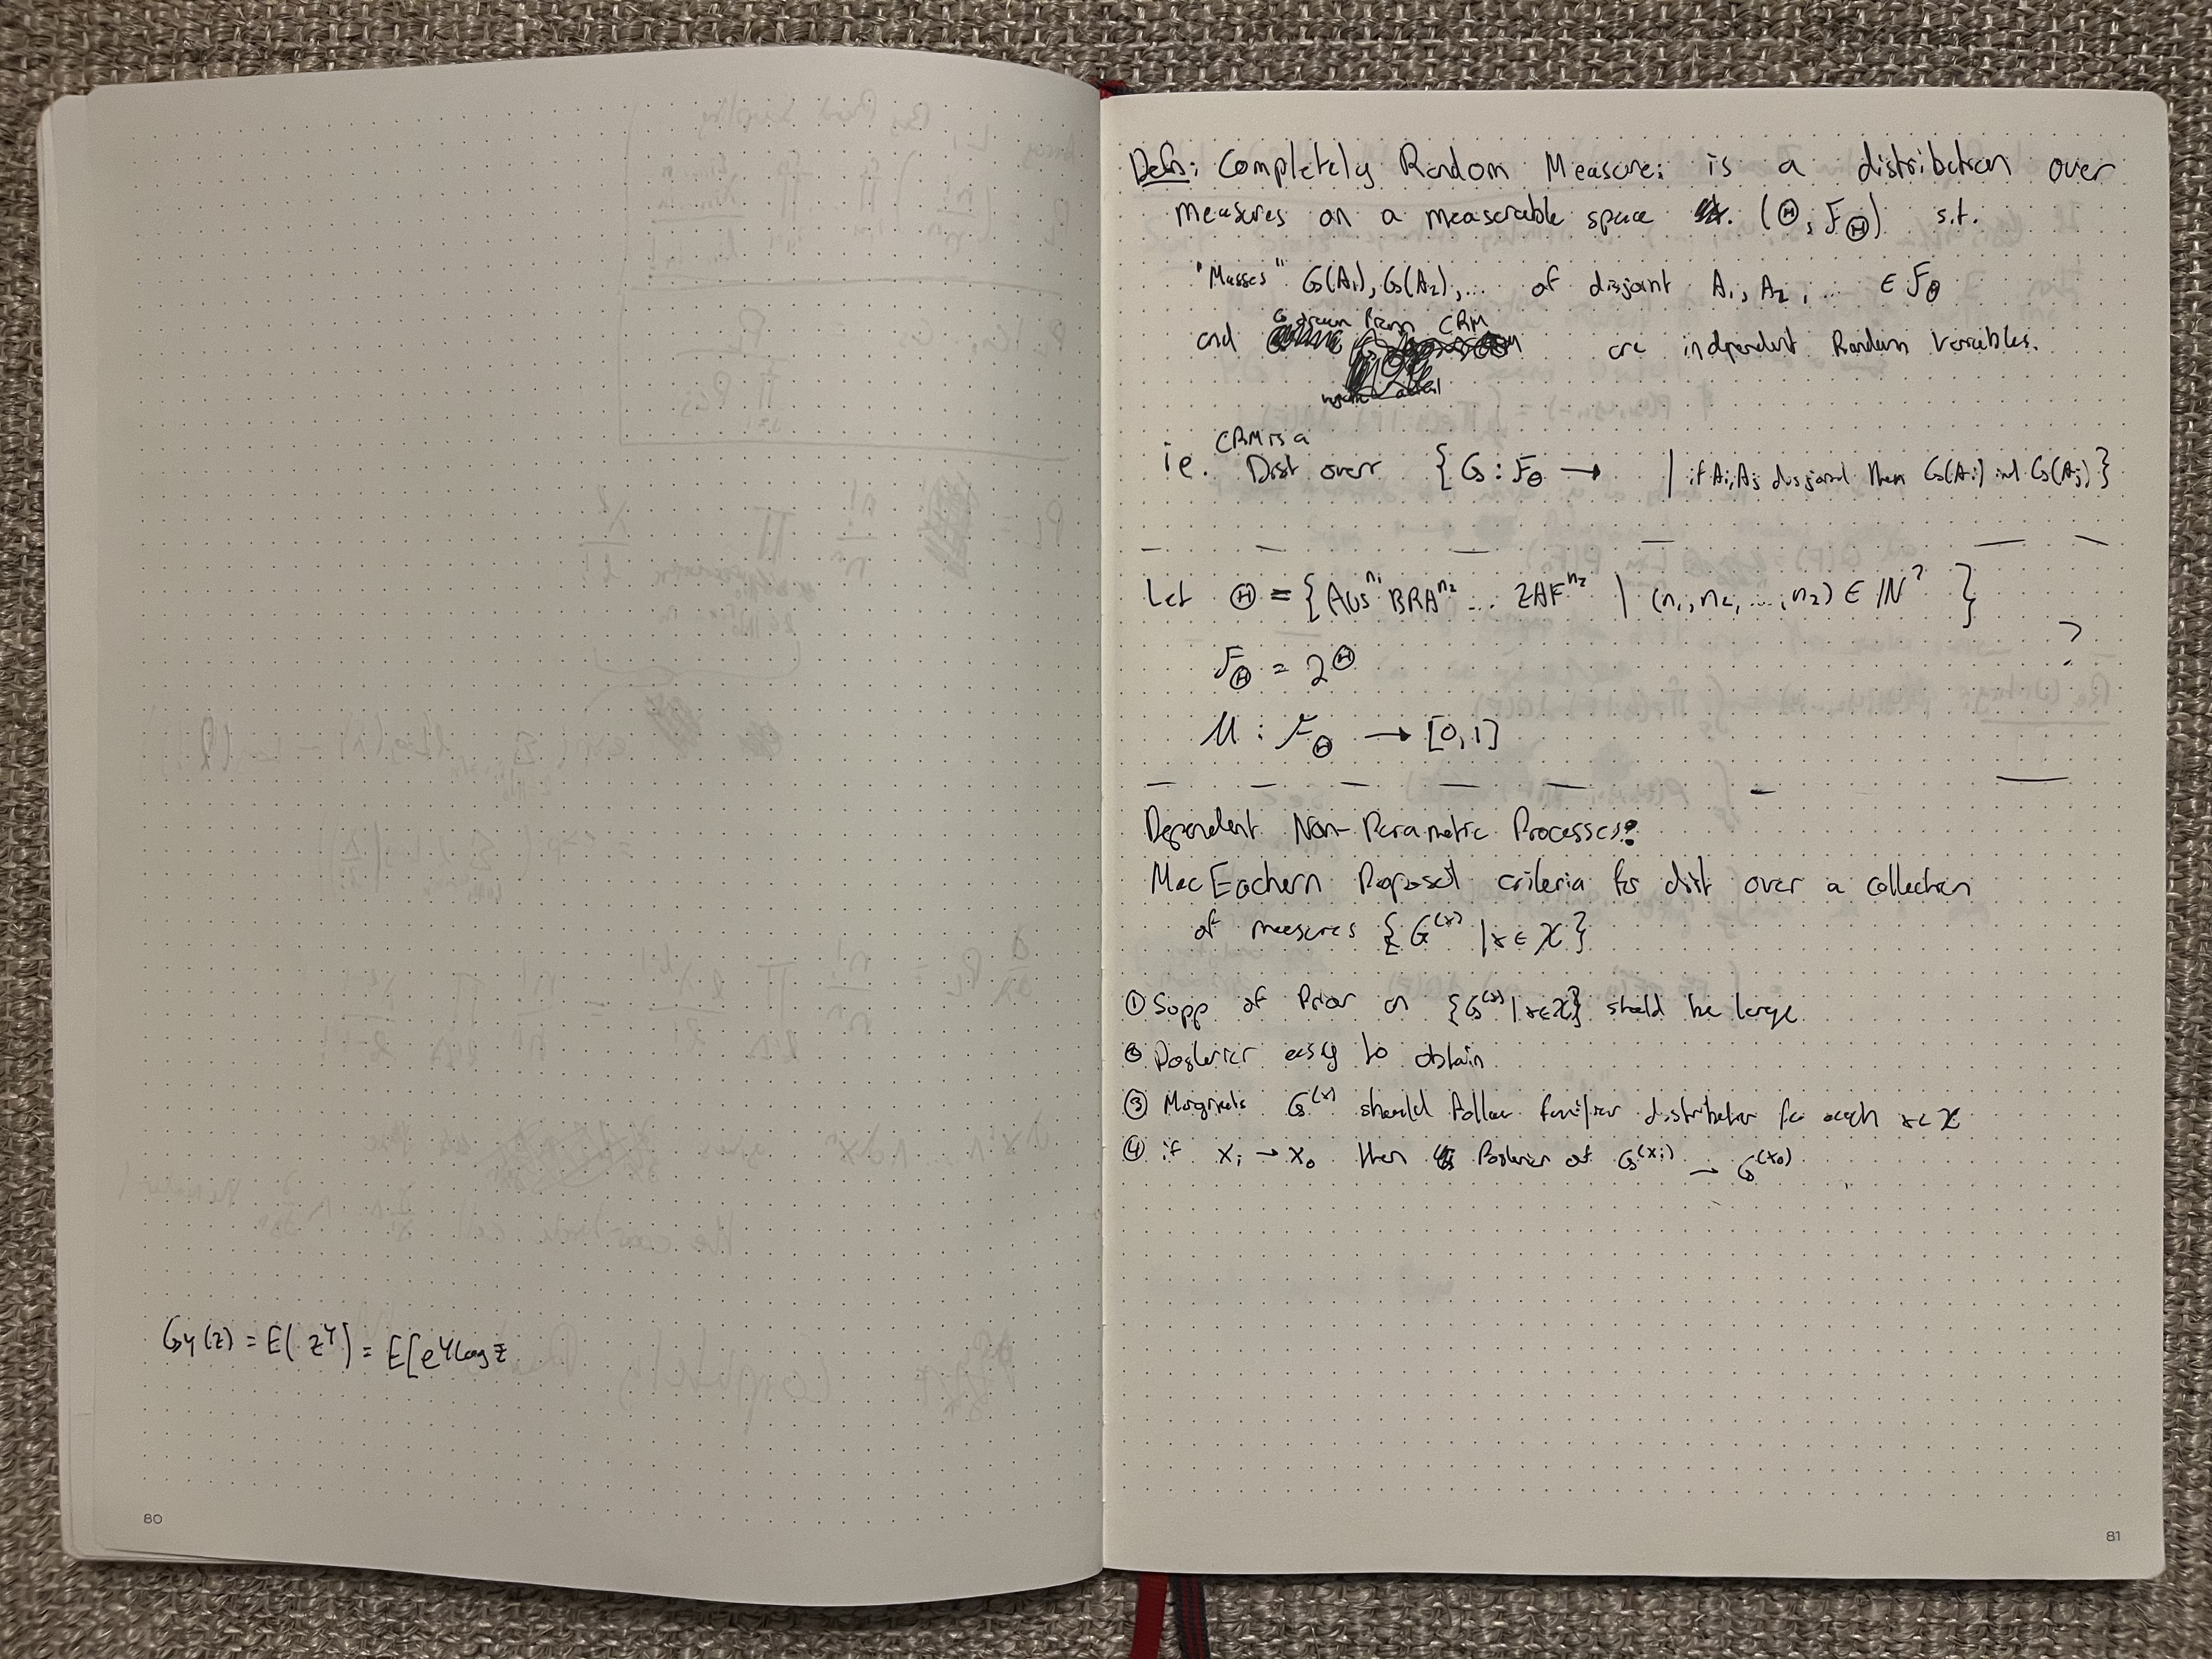 80
G_Y(z) = E(z^Y) = E[e^{Y log z}
Defn: Completely Random Measure: is a distribution over
measures on a measurable space (Θ, F_Θ) s.t.
"Masses" G(A₁), G(A₂), ... of disjoint A₁, A₂, ... ∈ F_Θ
and G from CRM are independent Random variables.
CRM is a
ie. Dist over { G : F_Θ → | if A_i, A_j disjoint then G(A_i) ind G(A_j) }
Let Θ = { AUS^{n₁} BRA^{n₂} ... ZAF^{n_z} | (n₁, n₂, ..., n_z) ∈ ℕ^? }
F_Θ = 2^Θ
μ : F_Θ → [0,1]
Dependent Non-Parametric Processes:
MacEachern Proposed criteria for dist over a collection
of measures { G^{(x)} | x ∈ X }
① Supp of Prior on {G^{(x)} | x ∈ X} should be large
② Posterior easy to obtain
③ Marginals G^{(x)} should follow familiar distribution for each x ∈ X
④ if x_i → x_0 then Posterior of G^{(x_i)} → G^{(x_0)}
81